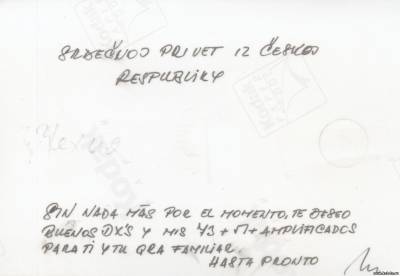 SRDEČNOJ PRIVET IZ ČESKOJ
RESPUBLIKY
SIN NADA MÁS POR EL MOMENTO, TE DESEO
BUENOS DX'S Y MIS 73 + 51 + AMPLIFICADOS
PARA TI Y TU GRA FAMILIAR.
HASTA PRONTO